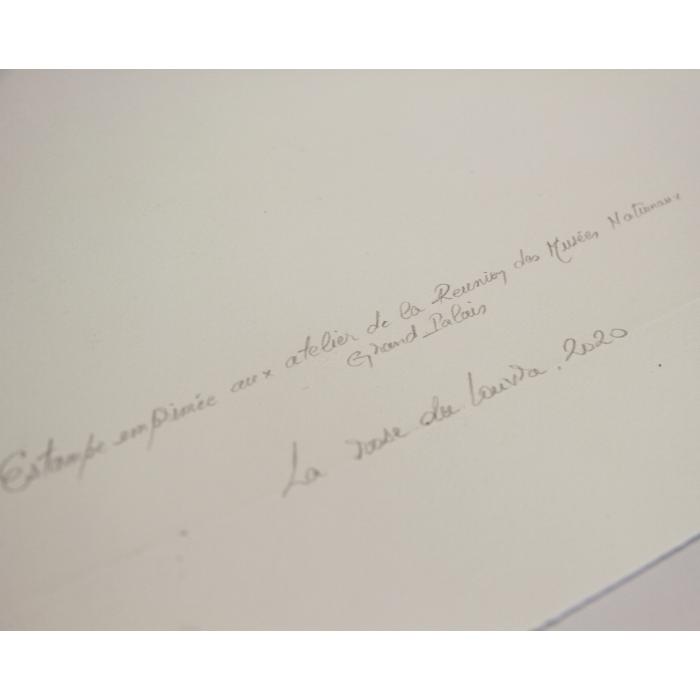 Estampe emprimée aux atelier de la Reunion des Musées Nationaux
Grand Palais
La rose du Louvre. 2020